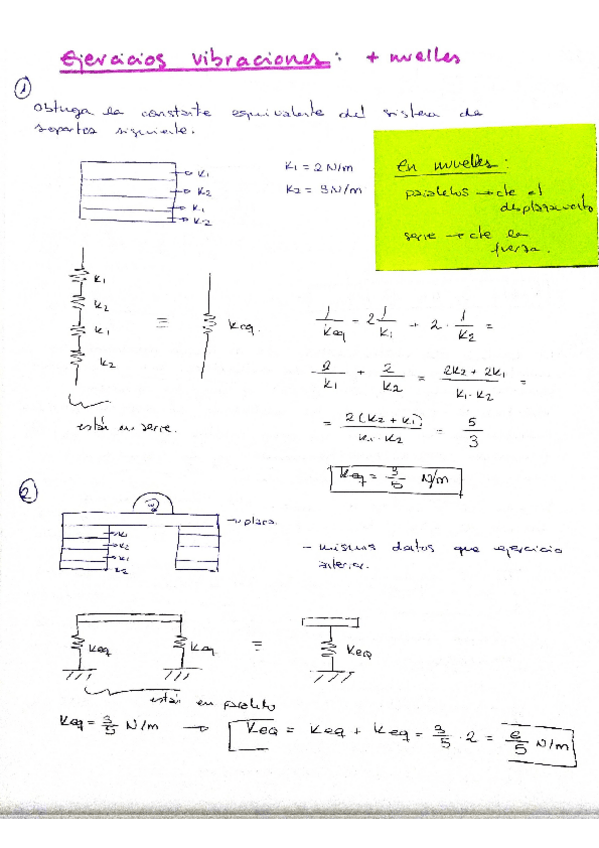 Ejercicios vibraciones: + muelles
1
Obtenga la constante equivalente del sistema de
soportes siguiente.
K1
K2
K1
K2
K1 = 2 N/m
K2 = 3 N/m
En muelles:
paralelos → cte el
desplazamiento
serie → cte la
fuerza.
K1
K2
K1
K2
≡
Keq.
están en serie.
1/Keq = 2 1/K1 + 2 · 1/K2 =
2/K1 + 2/K2 = 2K2 + 2K1 / K1·K2 =
= 2(K2 + K1) / K1·K2 = 5/3
Keq = 3/5 N/m
2
→ placa.
K1
K2
K1
K2
- mismos datos que ejercicio
anterior.
Keq
Keq
≡
KeQ
están en paralelo
Keq = 3/5 N/m → KeQ = Keq + Keq = 3/5 · 2 = 6/5 N/m